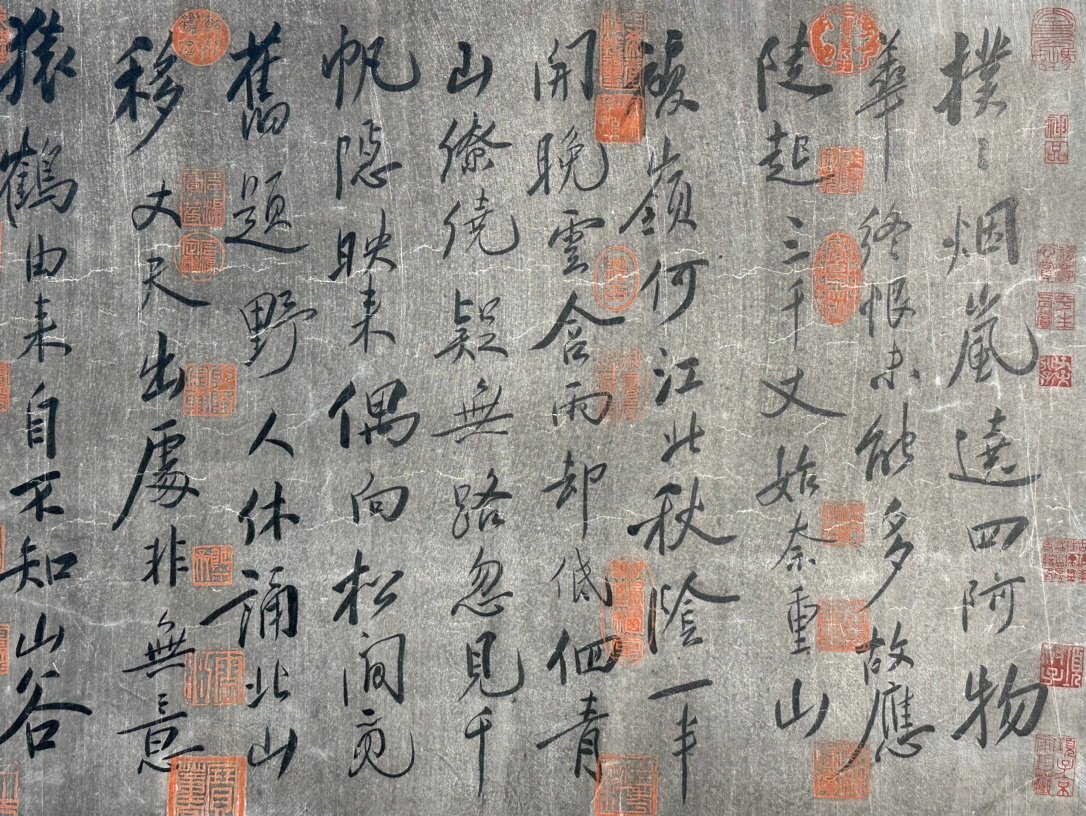 撲〻烟嵐遶四阿物
華終恨未能多故應
陡起三千丈始奈重山
複嶺何江北秋陰一半
開晚雲含雨却低佪青
山繚繞疑無路忽見千
帆隱映来偶向松間覓
舊題野人休誦北山
移丈夫出處非無意
猿鶴由来自不知山谷